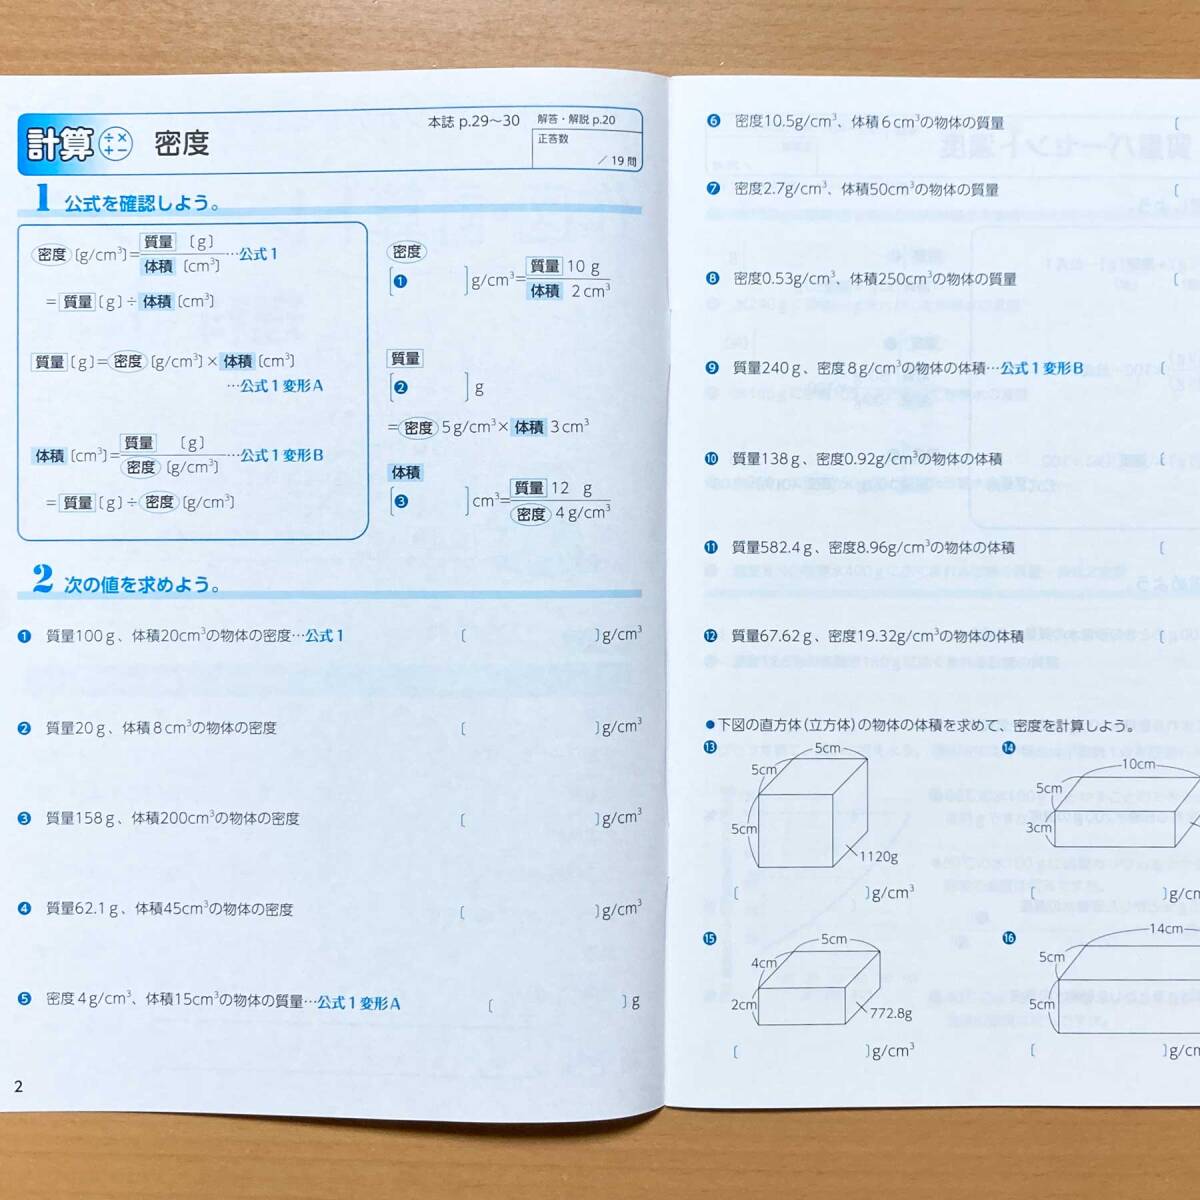 計算 ÷×+− 密度
本誌 p.29～30
解答・解説 p.20
正答数
／19問
1 公式を確認しよう。
密度〔g/cm³〕=質量〔g〕/体積〔cm³〕…公式1
=質量〔g〕÷体積〔cm³〕
質量〔g〕=密度〔g/cm³〕×体積〔cm³〕
…公式1変形A
体積〔cm³〕=質量〔g〕/密度〔g/cm³〕…公式1変形B
=質量〔g〕÷密度〔g/cm³〕
密度
[❶ ]g/cm³=質量10g/体積2cm³
質量
[❷ ]g
=密度5g/cm³×体積3cm³
体積
[❸ ]cm³=質量12g/密度4g/cm³
2 次の値を求めよう。
❶ 質量100g、体積20cm³の物体の密度…公式1 〔 〕g/cm³
❷ 質量20g、体積8cm³の物体の密度 〔 〕g/cm³
❸ 質量158g、体積200cm³の物体の密度 〔 〕g/cm³
❹ 質量62.1g、体積45cm³の物体の密度 〔 〕g/cm³
❺ 密度4g/cm³、体積15cm³の物体の質量…公式1変形A 〔 〕g
2
❻ 密度10.5g/cm³、体積6cm³の物体の質量 〔
❼ 密度2.7g/cm³、体積50cm³の物体の質量 〔
❽ 密度0.53g/cm³、体積250cm³の物体の質量 〔
❾ 質量240g、密度8g/cm³の物体の体積…公式1変形B 〔
❿ 質量138g、密度0.92g/cm³の物体の体積 〔
⓫ 質量582.4g、密度8.96g/cm³の物体の体積 〔
⓬ 質量67.62g、密度19.32g/cm³の物体の体積 〔
●下図の直方体(立方体)の物体の体積を求めて、密度を計算しよう。
⓭
5cm
5cm
5cm
1120g
〔 〕g/cm³
⓮
10cm
5cm
3cm
〔 〕g/cm
⓯
5cm
4cm
2cm
772.8g
〔 〕g/cm³
⓰
14cm
5cm
5cm
〔 〕g/cm